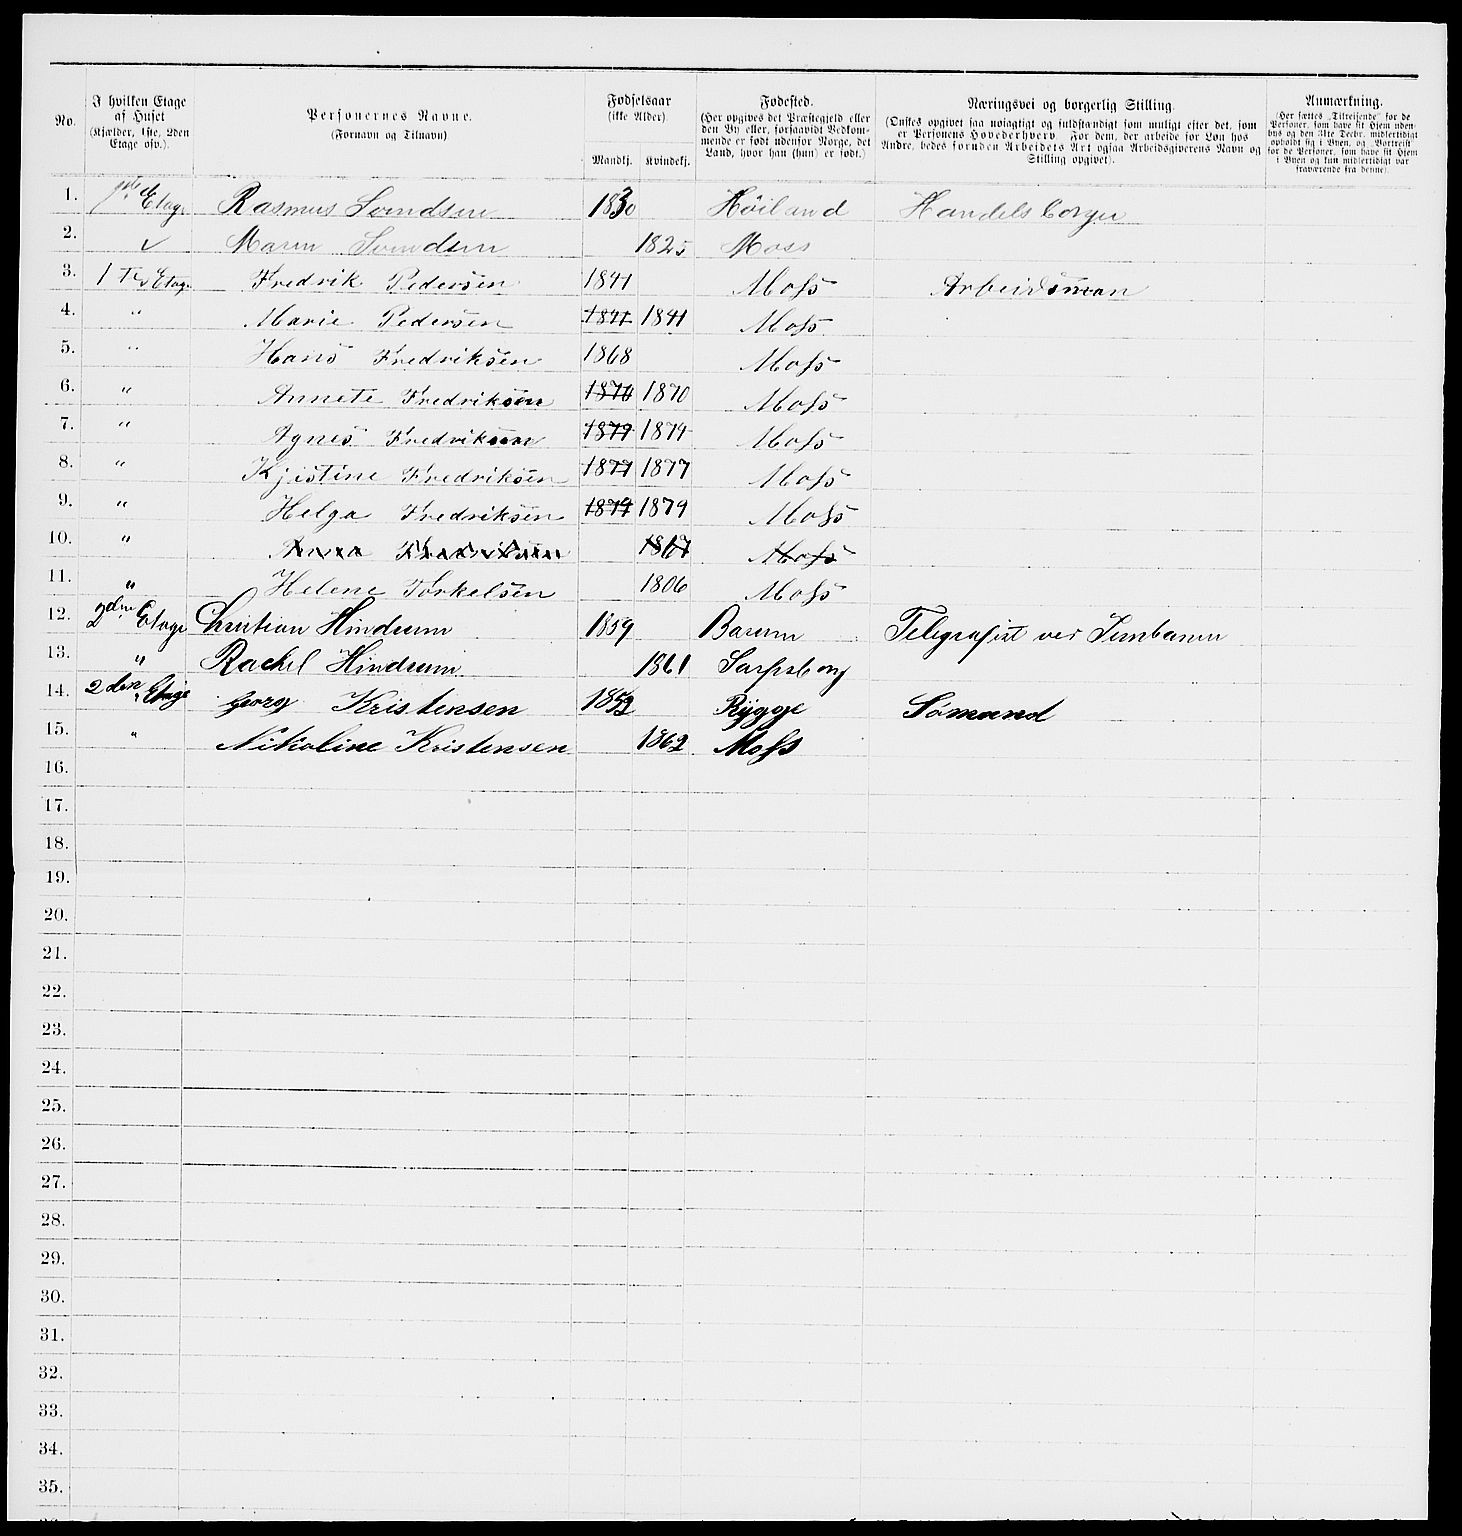 No.
I hvilken Etage af Huset (Kjælder, 1ste, 2den Etage osv.).
Personernes Navne. (Fornavn og Tilnavn)
Fødselsaar (ikke Alder). Mandkj. Kvindekj.
Fødested. (Her opgives det Præstegjeld eller den By eller, forsaavidt Vedkommende er født udenfor Norge, det Land, hvor han (hun) er født.)
Næringsvei og borgerlig Stilling. (Ønskes opgivet saa nøiagtigt og fuldstændigt som muligt efter det, som er Personens Hovederhverv. For dem, der arbeide for Løn hos Andre, bedes foruden Arbeidets Art ogsaa Arbeidsgiverens Navn og Stilling opgivet).
Anmærkning. (Her sættes „Tilreisende“ for de Personer, som have sit Hjem udenbys og den 31te Decbr. midlertidigt opholdt sig i Byen, og „Bortreist“ for de Personer, som have sit Hjem i Byen og kun midlertidigt var fraværende fra denne).
1. Etage Rasmus Svendsen 1830 Höiland Handelsborger
2. Maren Svendsen 1825 Moss
3. 1ste Etage Fredrik Pedersen 1841 Moss Arbeidsman
4. " Marie Pedersen 1841 1841 Moss
5. " Hans Fredriksen 1868 Moss
6. " Annete Fredriksen 1870 1870 Moss
7. " Agnes Fredriksen 1874 1874 Moss
8. " Kjistine Fredriksen 1877 1877 Moss
9. " Helga Fredriksen 1879 1879 Moss
10. " Anna Fredriksen 1867 Moss
11. " Helene Torkelsen 1806 Moss
12. 2den Etage Christian Hindrum 1859 Barum Telegrafist ved Jernbanen
13. " Rachel Hindrum 1861 Sarpsborg
14. 2den Etage Georg Kristensen 1852 Rygge Sømand
15. " Nikoline Kristensen 1862 Moss
16.
17.
18.
19.
20.
21.
22.
23.
24.
25.
26.
27.
28.
29.
30.
31.
32.
33.
34.
35.